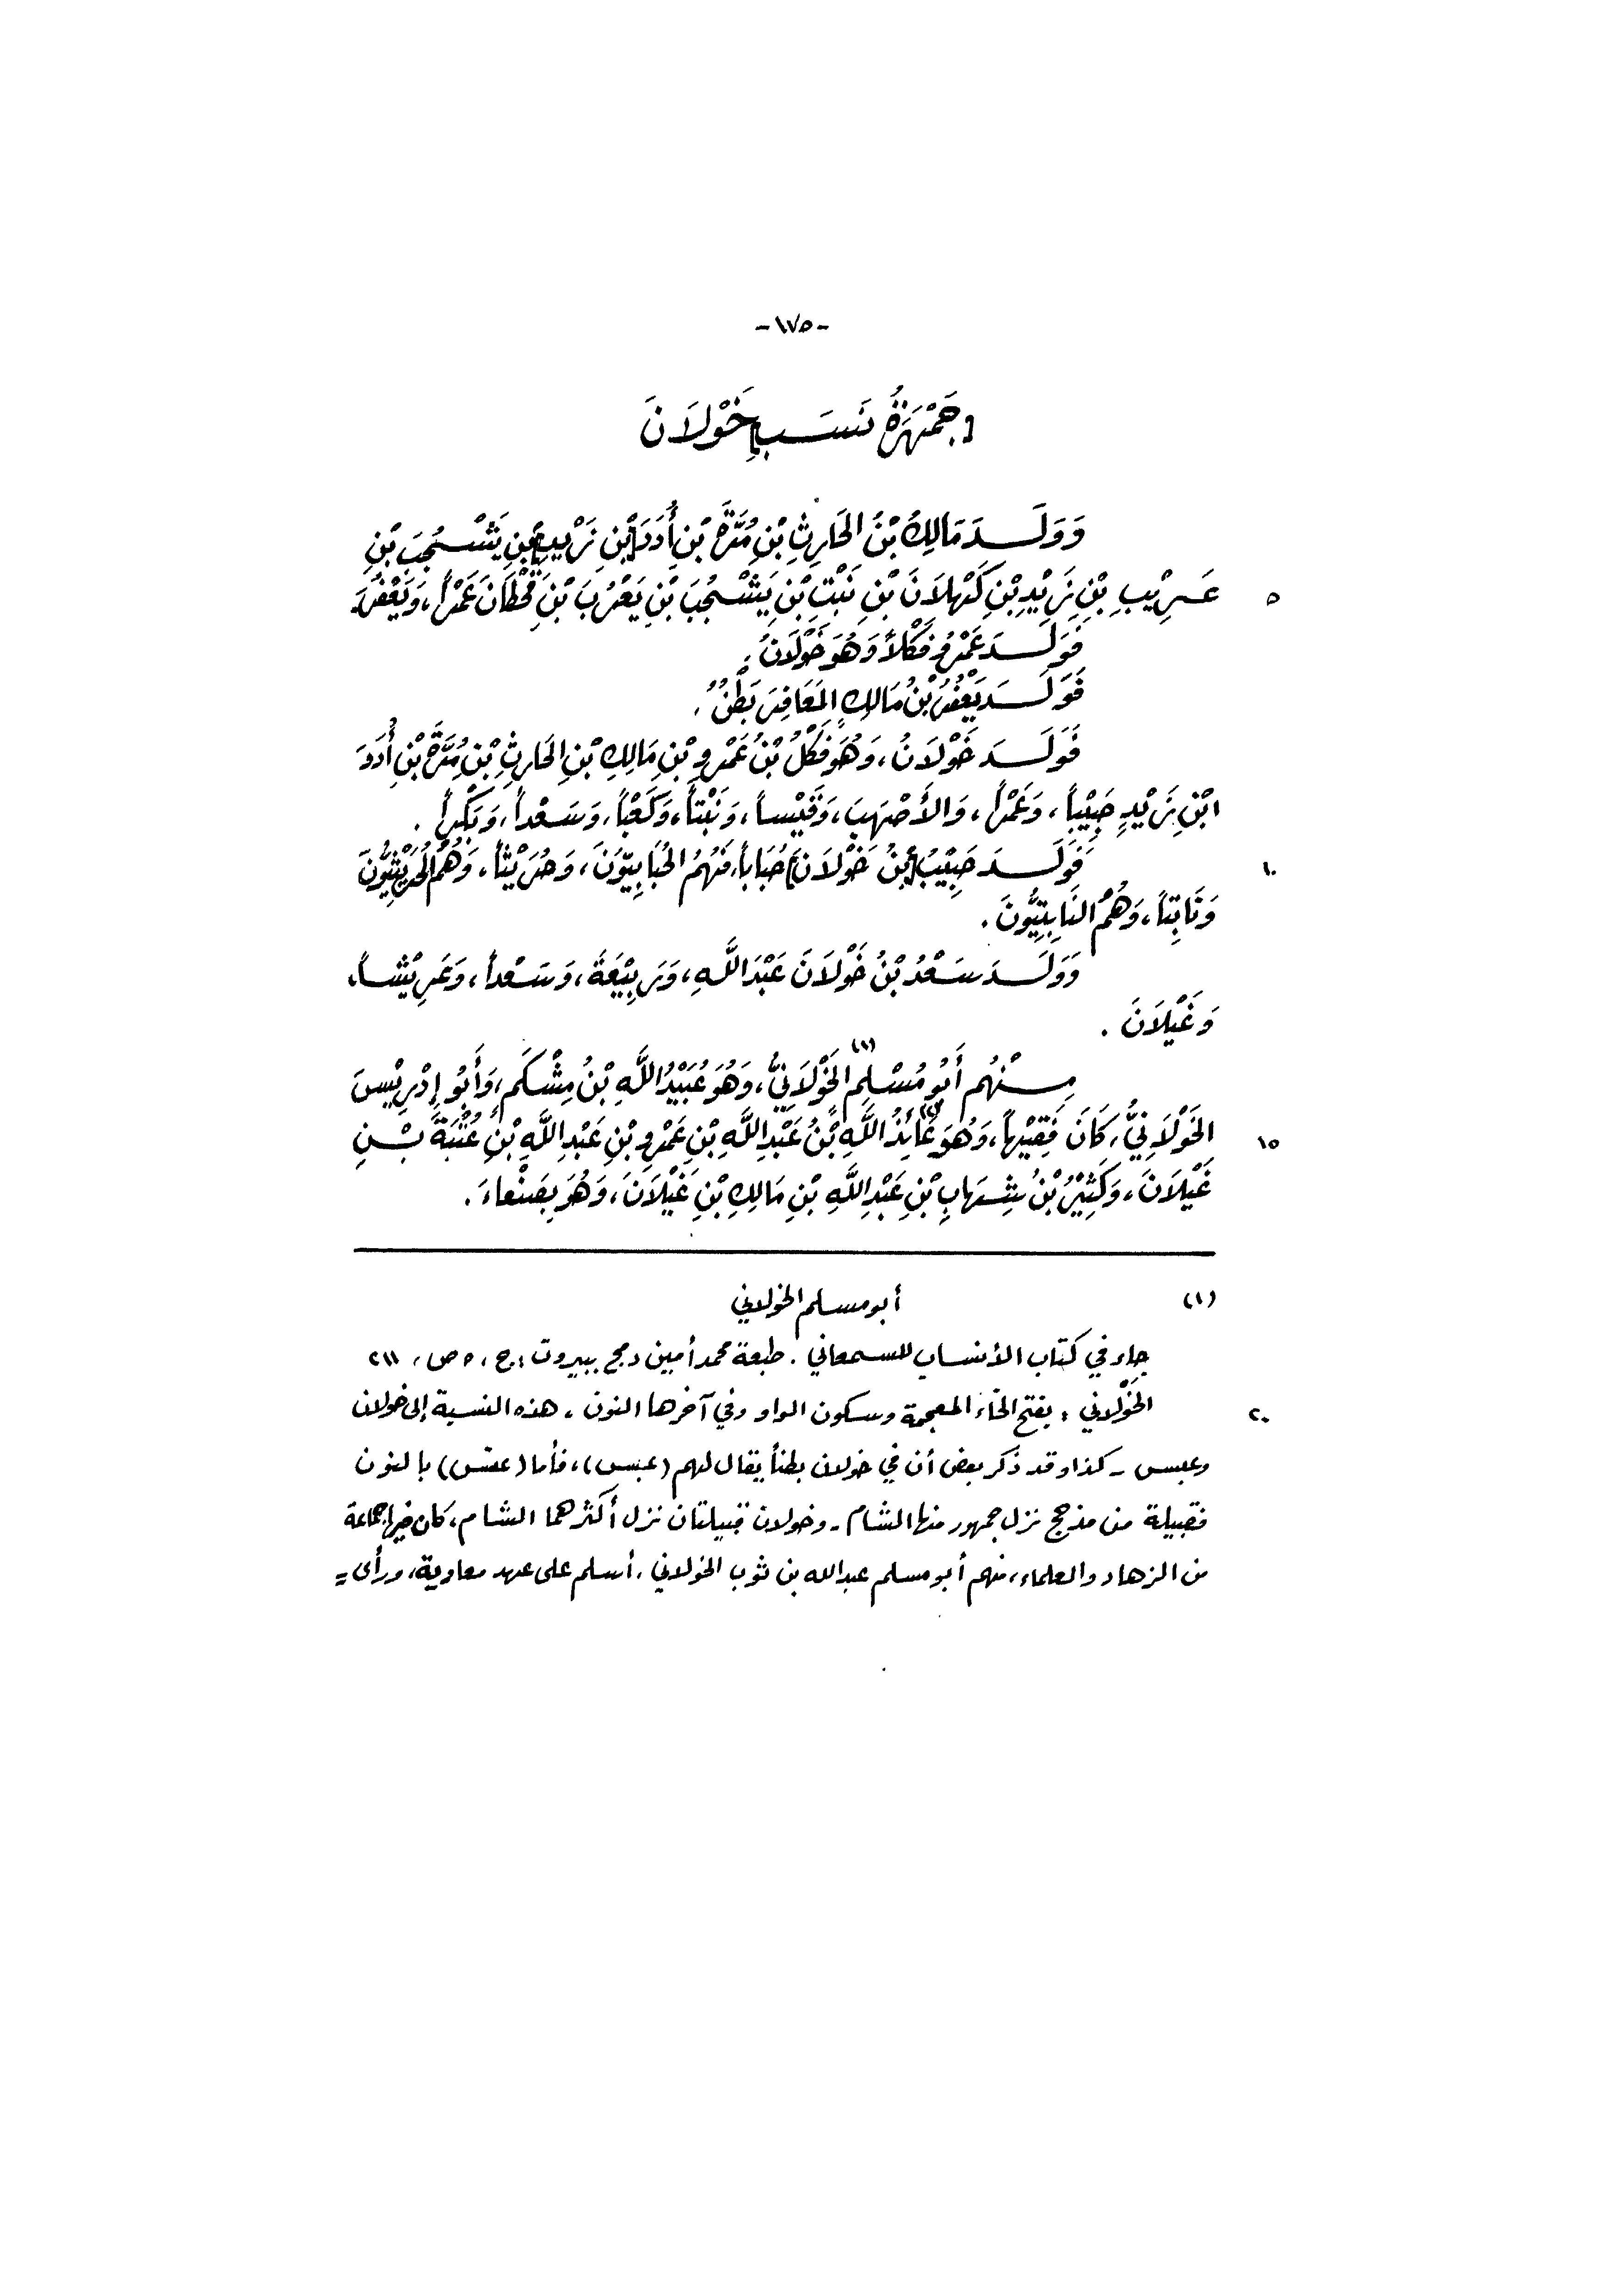 -١٧٥-
[جَمْهَرَةُ نَسَبِ] خَوْلَانَ
وَوَلَدَ مَالِكُ بْنُ الحَارِثِ بْنِ مُرَّةَ بْنِ أُدَدَ [بْنِ زَيْدِ] بْنِ يَشْجُبَ بْنِ
٥ عَرِيْبِ بْنِ زَيْدِ بْنِ كَهْلَانَ بْنِ نَبْتِ بْنِ يَشْجُبَ بْنِ يَعْرُبَ بْنِ قَحْطَانَ عَمْراً، وَيَعْفُرَ.
فَوَلَدَ عَمْرٌو فَكْلاً وَهُوَ خَوْلَانُ.
فَوَلَدَ يَعْفُرُ بْنُ مَالِكٍ المَعَافِرَ بَطْنٌ.
فَوَلَدَ خَوْلَانُ، وَهُوَ فَكْلُ بْنُ عَمْرِو بْنِ مَالِكِ بْنِ الحَارِثِ بْنِ مُرَّةَ بْنِ أُدَدَ
ابْنِ زَيْدٍ حَبِيْباً، وَعَمْراً، وَالأَصْهَبَ، وَقَيْساً، وَنَبْتاً، وَكَعْباً، وَسَعْداً، وَبَكْراً.
١٠ فَوَلَدَ حَبِيْبُ [بْنُ خَوْلَانَ] حُبَاباً، مِنْهُمُ الحُبَابِيّوُنَ، وَحُرَيْثاً، وَهُمُ الحُرَيْثِيُّونَ
وَنَابِتاً، وَهُمُ النَّابِتِيُّونَ.
وَوَلَدَ سَعْدُ بْنُ خَوْلَانَ عَبْدَ اللَّهِ، وَرَبِيْعَةَ، وَسَعْداً، وَعَرِيْشاً،
وَغَيْلَانَ.
مِنْهُم أَبُو مُسْلِمٍ الخَوْلَانِيُّ(١)، وَهُوَ عُبَيْدُ اللَّهِ بْنُ مِشْكَمٍ، وَأَبُو إِدْرِيْسَ
١٥ الخَوْلَانِيُّ، كَانَ فَقِيْهاً، وَهُوَ عَائِذُ(٢) اللَّهِ بْنُ عَبْدِ اللَّهِ بْنِ عَمْرِو بْنِ عَبْدِ اللَّهِ بْنِ عُتْبَةَ بْنِ
غَيْلَانَ، وَكَثِيْرُ بْنُ شِهَابِ بْنِ عَبْدِ اللَّهِ بْنِ مَالِكِ بْنِ غَيْلَانَ، وَهُوَ بِصَنْعَاءَ.
(١) أبو مسلم الخولاني
جاء في كتاب الأنساب للسمعاني. طبعة محمد أمين دمج ببيروت: ج، ٥ ص، ٢١١
٢٠ الخَوْلاني: بفتح الخاء المعجمة وسكون الواو وفي آخرها النون. هذه النسبة إلى خولان
وعبس - كذا وقد ذكر بعض أن في خولان بطناً يقال لهم (عبس)، فأما (عنس) بالنون
فقبيلة من مذحج نزل جمهور منها الشام - وخولان قبيلتان نزل أكثرهما الشام، كان فيها جماعة
من الزهاد والعلماء، منهم أبو مسلم عبد الله بن ثوب الخولاني. أسلم على عهد معاوية، ورأى =